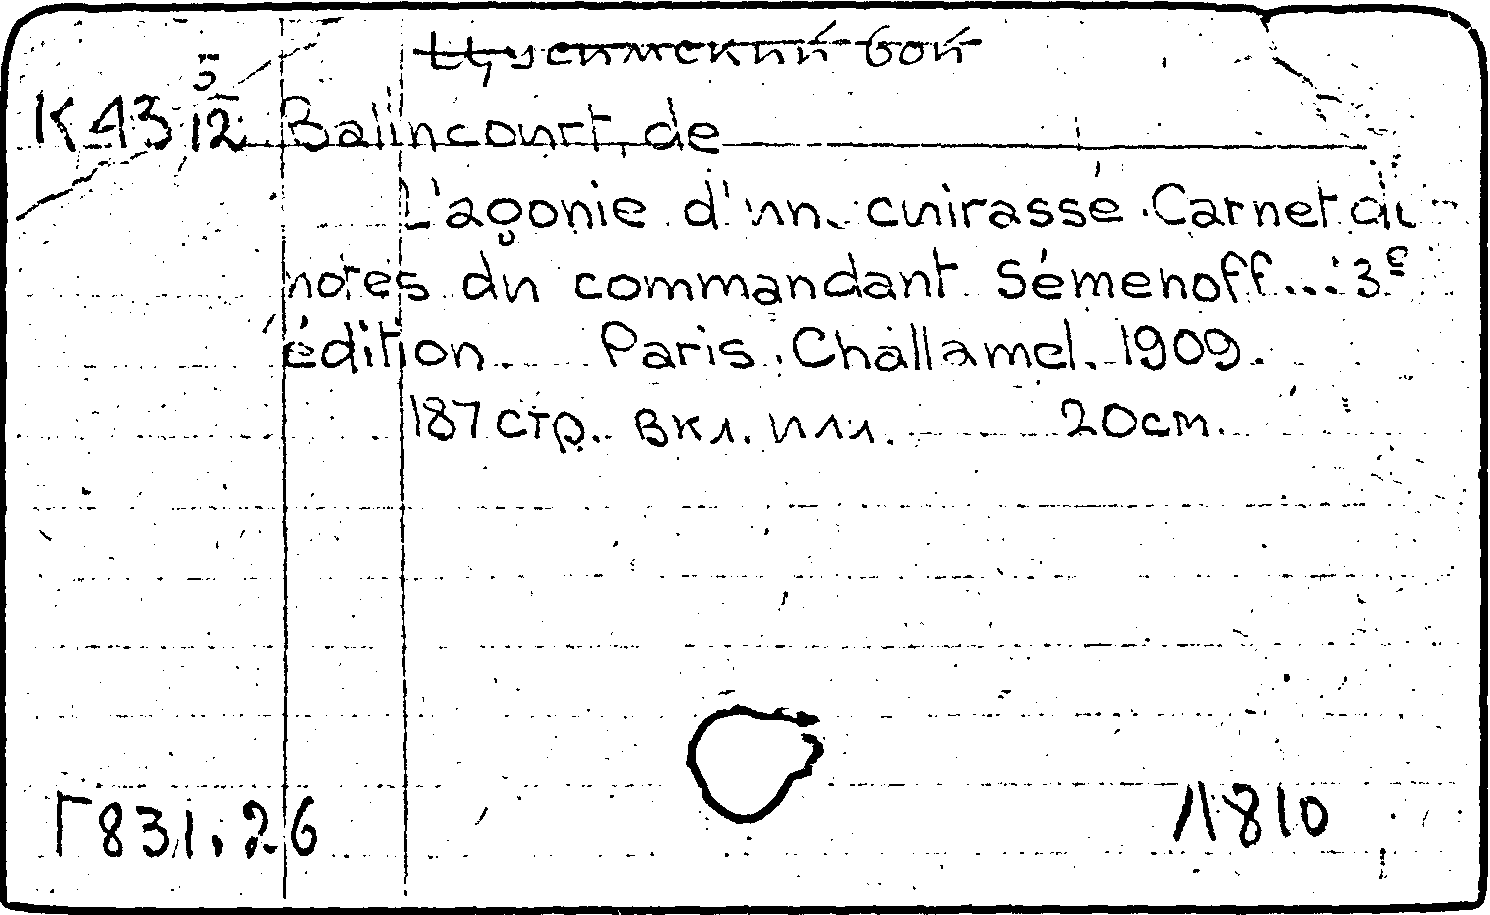 Цусимский бой
К 43 5/12 Balincourt, de
L'agonie d'un cuirassé. Carnet de
notes du commandant Sémenoff... 3e
édition. Paris. Challamel. 1909.
187 стр. вкл. илл. 20 cm.
Г 831.26
Л 810